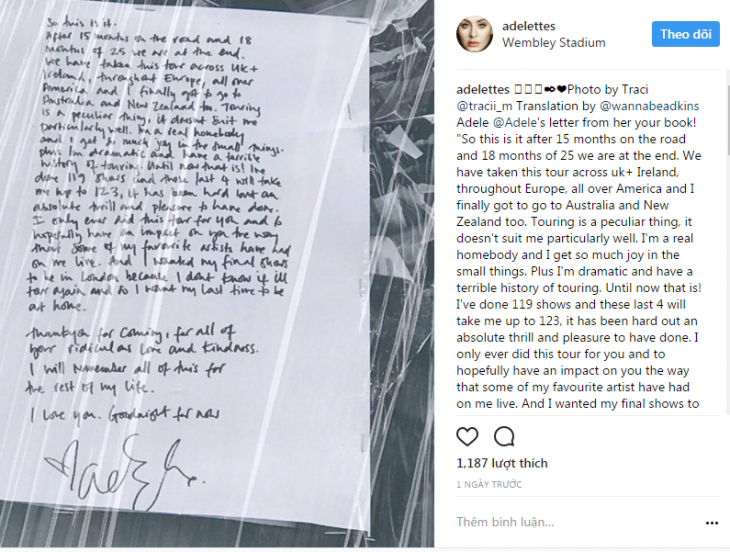 So this is it.
After 15 months on the road and 18
months of 25 we are at the end.
We have taken this tour across UK+
Ireland, throughout Europe, all over
America and I finally got to go to
Australia and New Zealand too. Touring
is a peculiar thing, it doesnt suit me
particularly well. Im a real homebody
and I get so much joy in the small things.
plus I'm dramatic and have a terrible
history of touring. Until now that is! Ive
done 119 shows and these last 4 will take
me up to 123, it has been hard but an
absolute thrill and pleasure to have done.
I only ever did this tour for you and to
hopefully have an impact on you the way
that some of my favourite artists have had
on me live. And I wanted my final shows
to be in London because I dont know if ill
tour again and so I want my last time to be
at home.
Thankyou for coming, for all of
your ridiculous love and kindness.
I will remember all of this for
the rest of my life.
I love you. Goodnight for now
adelettes
Wembley Stadium
Theo dõi
adelettes Photo by Traci
@tracii_m Translation by @wannabeadkins
Adele @Adele's letter from her your book!
"So this is it after 15 months on the road
and 18 months of 25 we are at the end. We
have taken this tour across uk+ Ireland,
throughout Europe, all over America and I
finally got to go to Australia and New
Zealand too. Touring is a peculiar thing, it
doesn't suit me particularly well. I'm a real
homebody and I get so much joy in the
small things. Plus I'm dramatic and have a
terrible history of touring. Until now that is!
I've done 119 shows and these last 4 will
take me up to 123, it has been hard out an
absolute thrill and pleasure to have done. I
only ever did this tour for you and to
hopefully have an impact on you the way
that some of my favourite artist have had
on me live. And I wanted my final shows to
1,187 lượt thích
1 NGÀY TRƯỚC
Thêm bình luận...